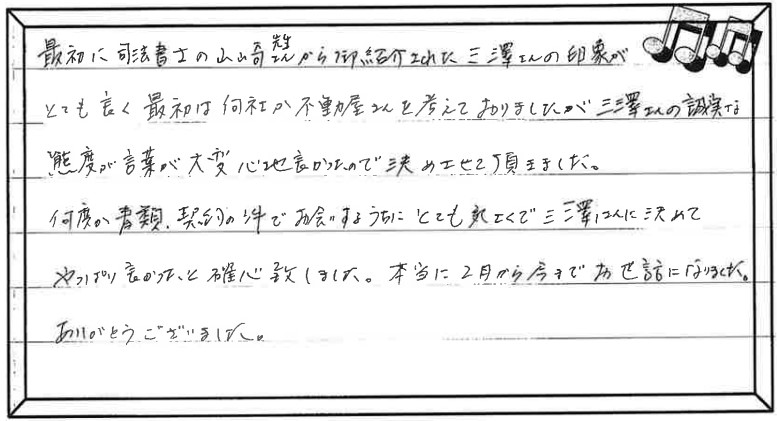 最初に司法書士の山崎先生から御紹介された三澤さんの印象が
とても良く最初は何社か不動屋さんを考えておりましたが三澤さんの誠実な
態度が言葉が大変心地良かったので決めさせて頂きました。
何度か書類、契約の件でお会いするうちにとても気さくで三澤さんに決めて
やっぱり良かったと確心致しました。本当に2月から今までお世話になりました。
ありがとうございました。